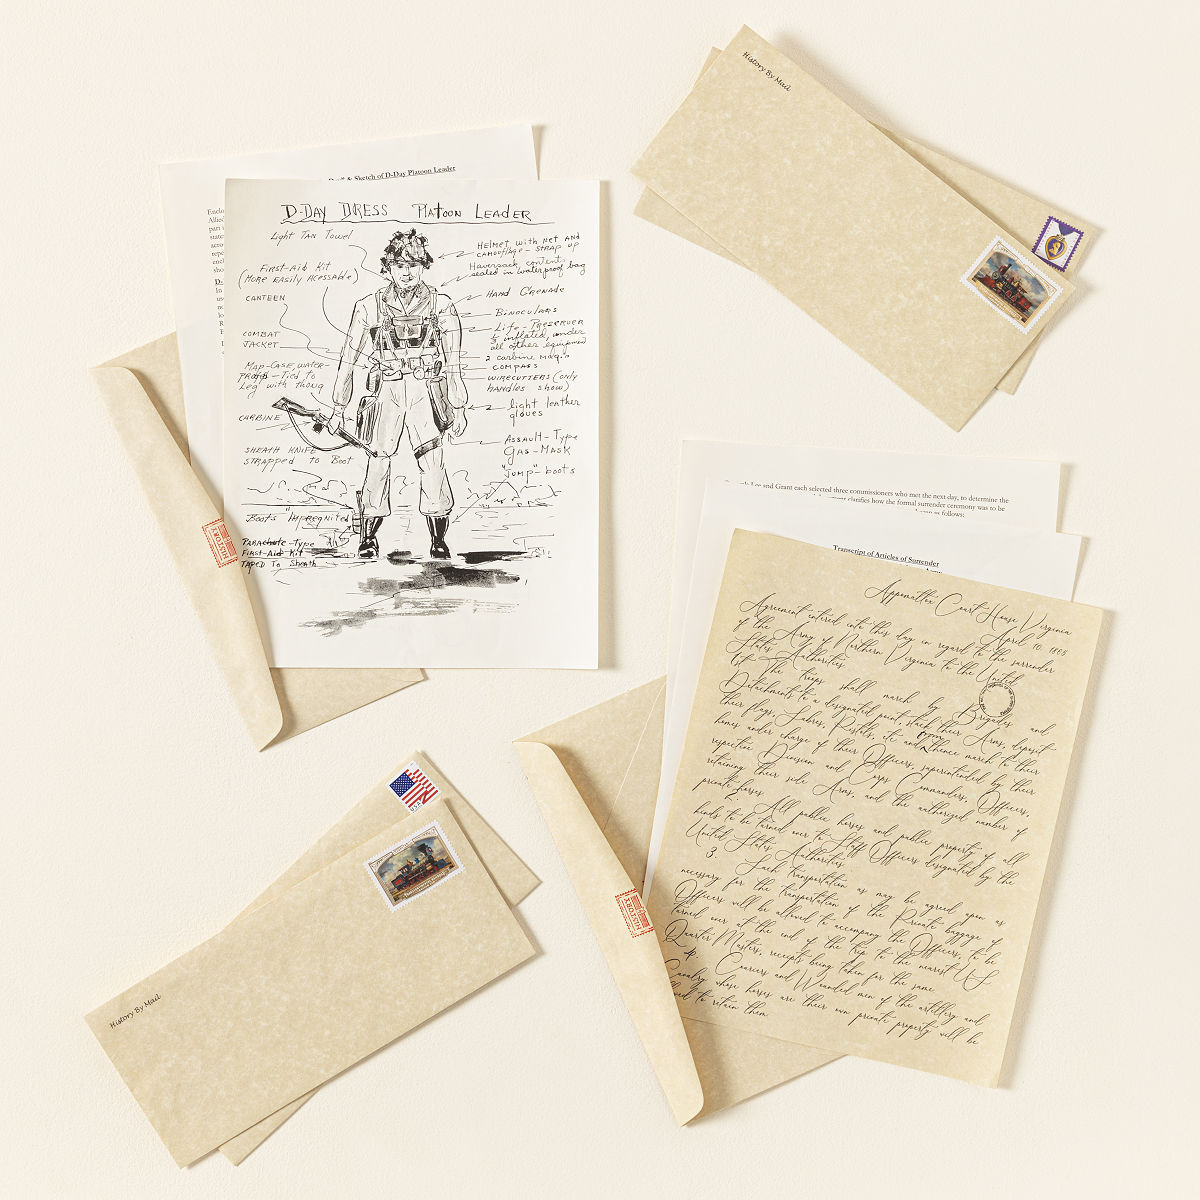 History By Mail
Sketch of D-Day Platoon Leader
D-DAY DRESS PLATOON LEADER
Light TAN Towel
First-Aid Kit
(MORE EASILY ACESSABLE)
CANTEEN
COMBAT
JACKET
MAP-CASE, WATER-
PROOFED - Tied to
Leg with thong
CARBINE
SHEATH KNIFE
STRAPPED to Boot
Boots "Impregnited"
PARAchute-Type
First-Aid Kit
TAPED To Sheath
HELMET with NET AND
CAMOUFLAGE - STRAP UP
Haversack contents
sealed in waterproof bag
HAND GRENADE
Binoculars
Life-Preserver
½ inflated, under
all other equipment
2 carbine mag.s
COMPASS
WIRECUTTERS (only
handles show)
light leather
gloves
ASSAULT-Type
GAS-MASK
"Jump"-boots
HISTORY
Lee and Grant each selected three commissioners who met the next day, to determine the
clarifies how the formal surrender ceremony was to be
as follows:
Transcript of Articles of Surrender
Appomattox Court House Virginia
April 10. 1865
Agreement entered into this day in regard to the surrender
of the Army of Northern Virginia to the United
States Authorities.
1st The troops shall march by Brigades and
Detachments to a designated point, stack their Arms, deposit
their flags, Sabres, Pistols, etc and from thence march to their
homes under charge of their Officers, superintended by their
respective Division and Corps Commanders, Officers,
retaining their side Arms, and the authorized number of
private horses.
2. All public horses and public property of all
kinds to be turned over to Staff Officers designated by the
United States Authorities.
3. Such transportation as may be agreed upon as
necessary for the transportation of the Private baggage of
Officers will be allowed to accompany the Officers, to be
turned over at the end of the trip to the nearest U.S.
Quarter Masters, receipts being taken for the same.
4. Couriers and Wounded men of the artillery and
Cavalry whose horses are their own private property will be
to retain them
HISTORY
History By Mail